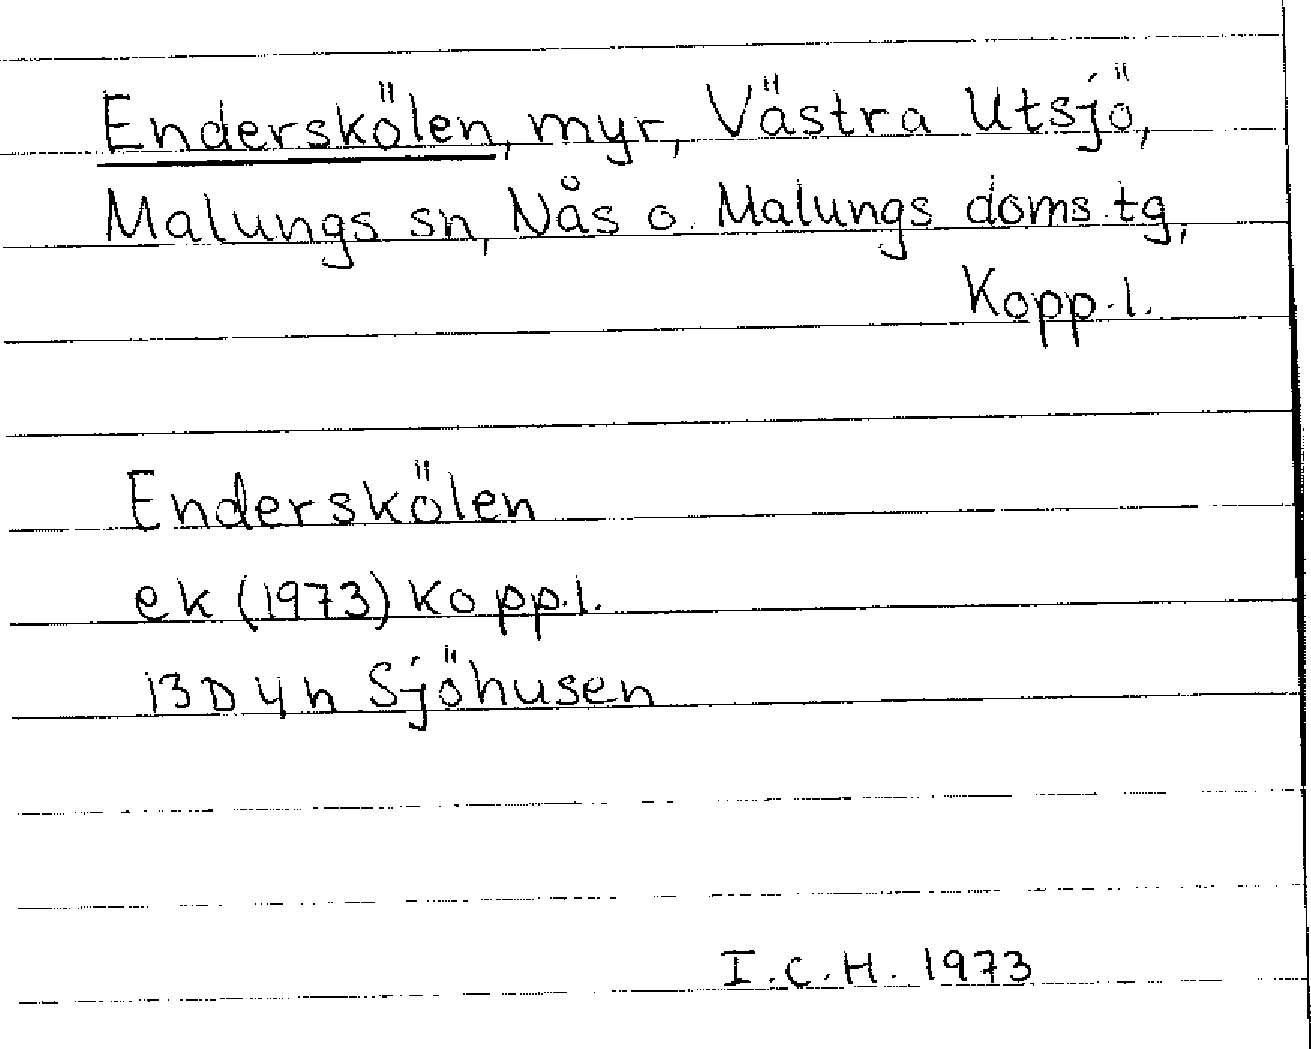 Enderskölen, myr, Västra Utsjö,
Malungs sn, Nås o. Malungs doms.tg,
Kopp.l.
Enderskölen
ek (1973) Kopp.l.
13D4h Sjöhusen
I.C.H. 1973